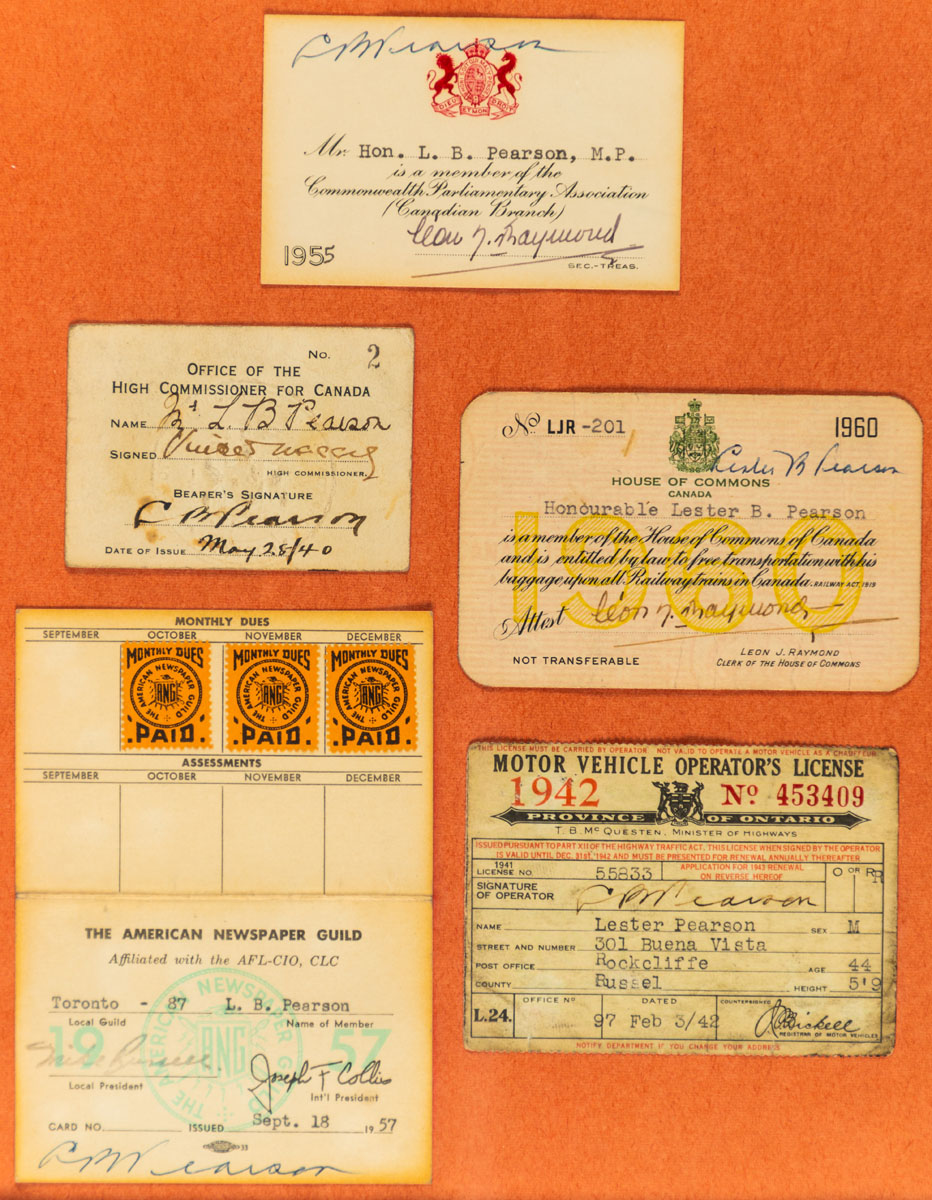 L B Pearson
DIEU ET MON DROIT
Mr. Hon. L. B. Pearson, M.P.
is a member of the
Commonwealth Parliamentary Association
(Canadian Branch)
Léon J. Raymond
1955
SEC.-TREAS.
No. 2
OFFICE OF THE
HIGH COMMISSIONER FOR CANADA
NAME Mr L B Pearson
SIGNED Vincent Massey
HIGH COMMISSIONER.
BEARER'S SIGNATURE
L B Pearson
DATE OF ISSUE May 28/40
No LJR -201 1960
Lester B Pearson
HOUSE OF COMMONS
CANADA
Honourable Lester B. Pearson
1960
is a member of the House of Commons of Canada
and is entitled by law to free transportation with his
baggage upon all Railway trains in Canada. RAILWAY ACT, 1919
Attest Léon J. Raymond
LEON J. RAYMOND
NOT TRANSFERABLE CLERK OF THE HOUSE OF COMMONS
MONTHLY DUES
SEPTEMBER OCTOBER NOVEMBER DECEMBER
MONTHLY DUES THE AMERICAN NEWSPAPER GUILD ANG PAID
MONTHLY DUES THE AMERICAN NEWSPAPER GUILD ANG PAID
MONTHLY DUES THE AMERICAN NEWSPAPER GUILD ANG PAID
ASSESSMENTS
SEPTEMBER OCTOBER NOVEMBER DECEMBER
THE AMERICAN NEWSPAPER GUILD
Affiliated with the AFL-CIO, CLC
Toronto - 87 L. B. Pearson
Local Guild Name of Member
19 THE AMERICAN NEWSPAPER GUILD ANG 57
Joseph F Collis
Local President Int'l President
CARD NO. ISSUED Sept. 18 1957
L B Pearson
THIS LICENSE MUST BE CARRIED BY OPERATOR NOT VALID TO OPERATE A MOTOR VEHICLE AS A CHAUFFEUR
MOTOR VEHICLE OPERATOR'S LICENSE
1942 No 453409
PROVINCE OF ONTARIO
T. B. McQUESTEN, MINISTER OF HIGHWAYS
ISSUED PURSUANT TO PART XII OF THE HIGHWAY TRAFFIC ACT, THIS LICENSE WHEN SIGNED BY THE OPERATOR
IS VALID UNTIL DEC. 31ST, 1942 AND MUST BE PRESENTED FOR RENEWAL ANNUALLY THEREAFTER
1941 LICENSE NO. 55833 APPLICATION FOR 1943 RENEWAL ON REVERSE HEREOF O OR R R
SIGNATURE OF OPERATOR L B Pearson
NAME Lester Pearson SEX M
STREET AND NUMBER 301 Buena Vista
POST OFFICE Rockcliffe AGE 44
COUNTY Russel HEIGHT 5'9
L.24. OFFICE No 97 DATED Feb 3/42 COUNTERSIGNED J P Bickell
REGISTRAR OF MOTOR VEHICLES
NOTIFY DEPARTMENT IF YOU CHANGE YOUR ADDRESS